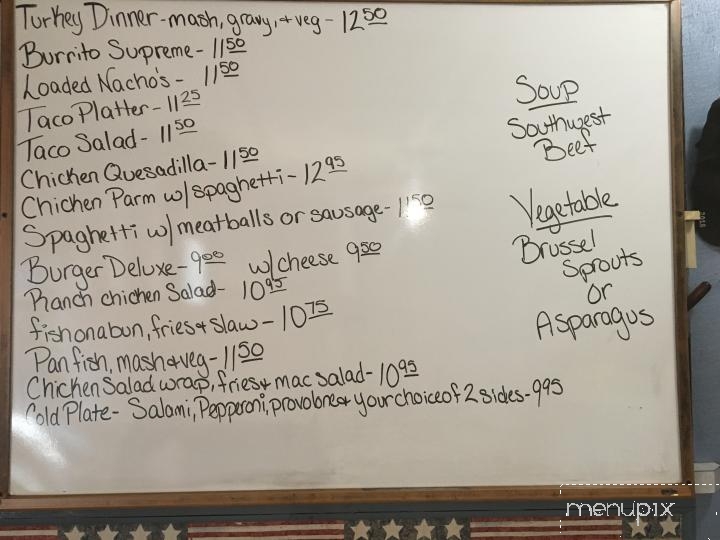 Turkey Dinner - mash, gravy, + veg - 12 50
Burrito Supreme - 11 50
Loaded Nacho's - 11 50
Taco Platter - 11 25
Taco Salad - 11 50
Chicken Quesadilla - 11 50
Chicken Parm w/ spaghetti - 12 95
Spaghetti w/ meatballs or sausage - 11 50
Burger Deluxe - 9 00 w/ cheese 9 50
Ranch chicken Salad - 10 95
fish on a bun, fries + slaw - 10 75
Pan fish, mash + veg - 11 50
Chicken Salad wrap, fries + mac salad - 10 95
Cold Plate - Salami, Pepperoni, provolone + your choice of 2 sides - 995
Soup
Southwest
Beef
Vegetable
Brussel
Sprouts
or
Asparagus
menupix